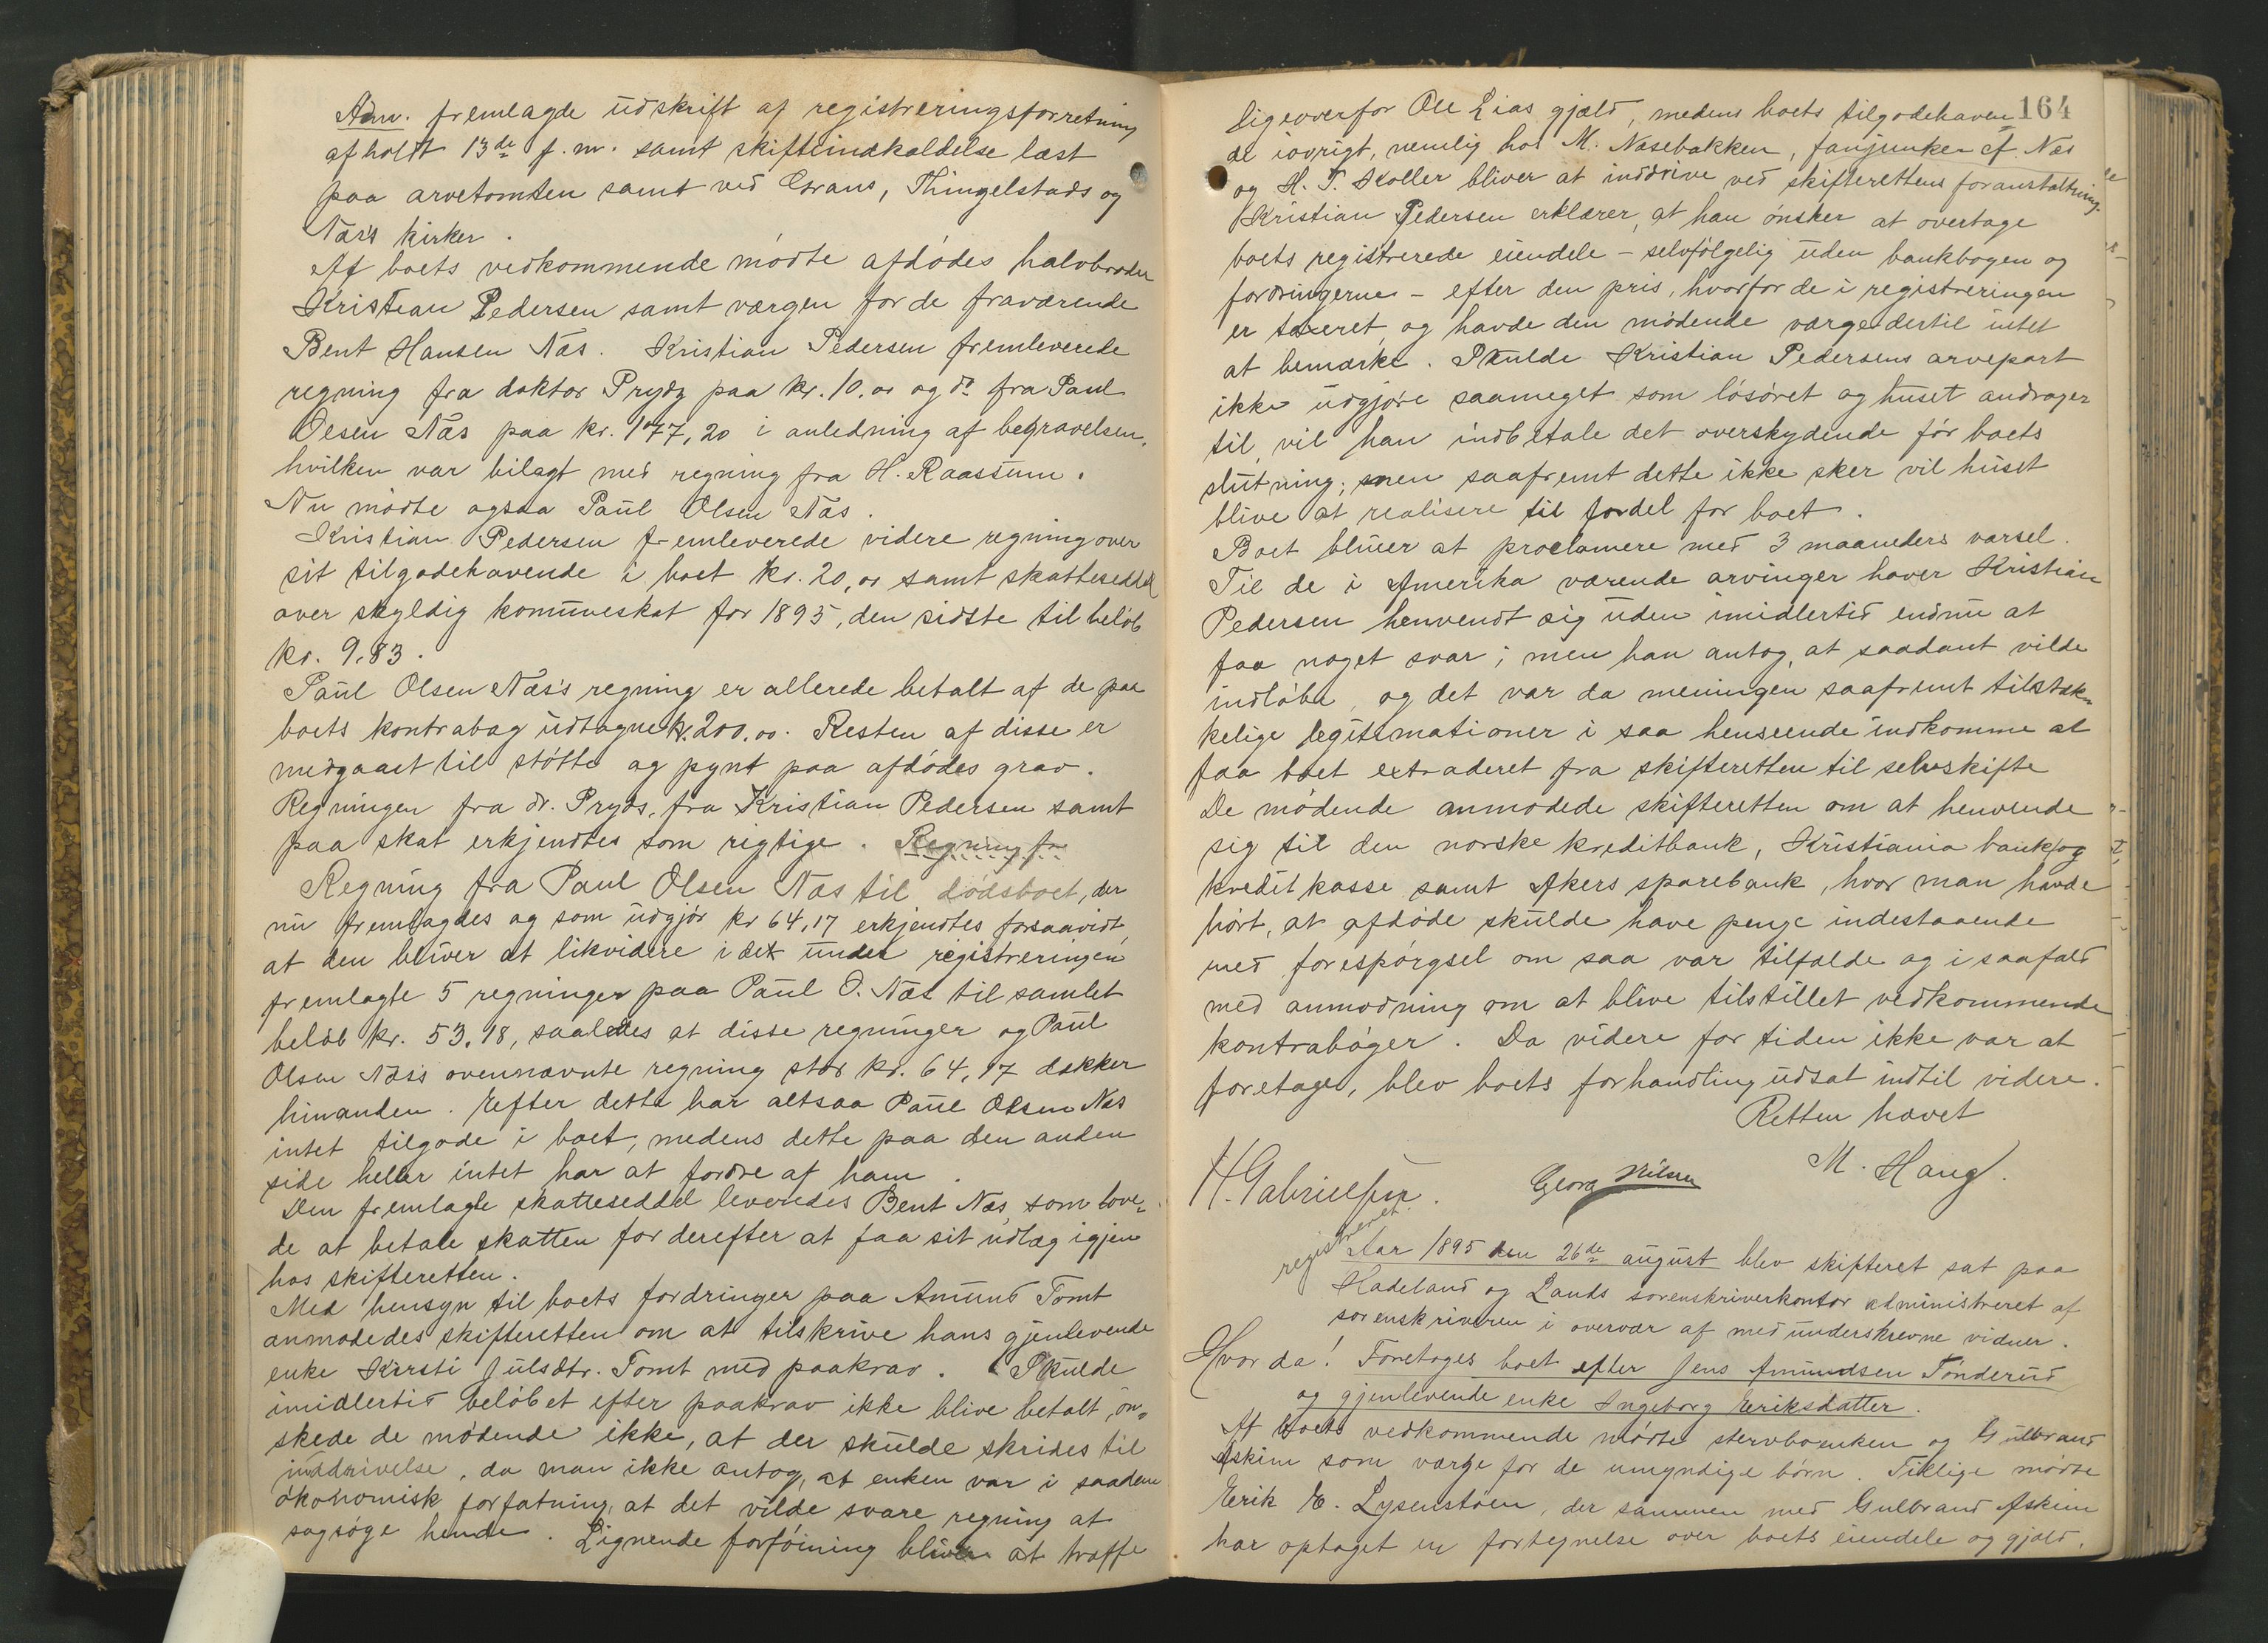 Adm. fremlagde udskrift af registreringsforretning
afholdt 13de f. m. samt skifteindkaldelse læst
paa arvetomten samt ved Grans, Thingelstads og
Næs's kirker.
Af boets vedkommende mødte afdødes halvbroder
Kristian Pedersen samt værgen for de fraværende
Bent Hansen Næs. Kristian Pedersen fremleverede
regning fra doktor Prydz paa kr. 10.00 og do fra Paul
Olsen Næs paa kr. 177,20 i anledning af begravelsen,
hvilken var bilagt med regning fra H. Raassum.
Nu mødte ogsaa Paul Olsen Næs.
Kristian Pedersen fremleverede videre regning over
sit tilgodehavende i boet kr. 20,00 samt skatteseddel
over skyldig kommuneskat for 1895, den sidste til beløb
kr. 9.83.
Paul Olsen Næs's regning er allerede betalt af de paa
boets kontrabog udtagne kr. 200.00. Resten af disse er
medgaaet til støtte og pynt paa afdødes grav.
Regningen fra dr. Pryds, fra Kristian Pedersen samt
paa skat erkjendtes som rigtige. Regning fra
Regning fra Paul Olsen Næs til dødsboet, der
nu fremlagdes og som udgjør kr 64,17 erkjendtes forsaavidt,
at den bliver at likvidere i det under registreringen
fremlagte 5 regninger paa Paul O. Næs til samlet
beløb kr. 53.18, saaledes at disse regninger og Paul
Olsen Næs's ovennævnte regning stor kr. 64,17 dækker
hinanden. Efter dette har altsaa Paul Olsen Næs
intet tilgode i boet, medens dette paa den anden
side heller intet har at fordre af ham.
Den fremlagte skatteseddel leveredes Bent Næs, som love-
de at betale skatten for derefter at faa sit udlæg igjen
hos skifteretten.
Med hensyn til boets fordringer paa Amund Tomt
anmodedes skifteretten om at tilskrive hans gjenlevende
enke Kirsti Julsdtr. Tomt med paakrav. Skulde
imidlertid beløbet efter paakrav ikke blive betalt, øn-
skede de mødende ikke, at der skulde skrides til
inddrivelse, da man ikke antog, at enken var i saadan
økonomisk forfatning, at det vilde svare regning at
sagsøge hende. Lignende forføining bliver at træffe
164
ligeoverfor Ole Lias gjæld, medens boets tilgodehaven-
de iøvrigt, nemlig hos M. Næsebakken, fanjunker Næs
og H. T. Koller bliver at inddrive ved skifterettens foranstaltning.
Kristian Pedersen erklærer, at han ønsker at overtage
boets registrerede eiendele - selvfølgelig uden bankbogen og
fordringerne - efter den pris, hvorfor de i registreringen
er taxeret, og havde den mødende værge dertil intet
at bemærke. Skulde Kristian Pedersens arvepart
ikke udgjøre saameget som løsøret og huset andrager
til, vil han indbetale det overskydende før boets
slutning; men saafremt dette ikke sker vil huset
blive at realisere til fordel for boet.
Boet bliver at proclamere med 3 maaneders varsel.
Til de i Amerika værende arvinger haver Kristian
Pedersen henvendt sig uden imidlertid endnu at
faa noget svar; men han antog, at saadant vilde
indløbe, og det var da meningen saafremt tilstræk-
kelige legitimationer i saa henseende indkomme at
faa boet extraderet fra skifteretten til selvskifte
De mødende anmodede skifteretten om at henvende
sig til den norske kreditbank, Kristiania bank og
kredit kasse samt Akers sparebank, hvor man havde
hørt, at afdøde skulde have penge indestaaende
med forespørgsel om saa var tilfælde og i saafald
med anmodning om at blive tilstillet vedkommende
kontrabøger. Da videre for tiden ikke var at
foretage, blev boets forhandling udsat indtil videre.
Retten hævet
M. Haug.
H. Gabrielsen. Georg Nilsen
registreret.
Aar 1895 den 26de august blev skifteret sat paa
Hadeland og Lands sorenskriverkontor administreret af
sorenskriveren i overvær af medunderskrevne vidner.
Hvor da! Foretoges boet efter Jens Amundsen Tønderud
og gjenlevende enke Ingeborg Eriksdatter.
Af boets vedkommende mødte stervboenken og Gulbrand
Askim som værge for de umyndige børn. Tillige mødte
Erik E. Lysenstøen, der sammen med Gulbrand Askim
har optaget en fortegnelse over boets eiendele og gjæld.